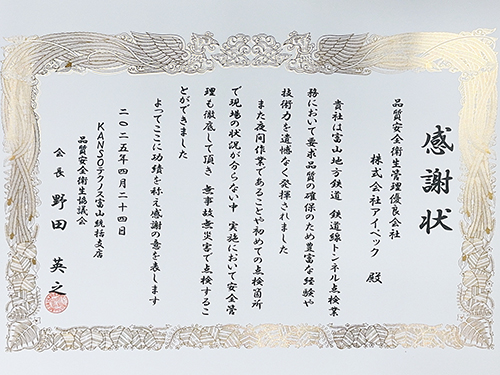 感謝状
品質安全衛生管理優良会社
株式会社アイペック 殿
貴社は富山地方鉄道 鉄道線トンネル点検業
務において要求品質の確保のため豊富な経験や
技術力を遺憾なく発揮されました
また夜間作業であることや初めての点検箇所
で現場の状況が分らない中 実施において安全管
理も徹底して頂き 無事故無災害で点検するこ
とができました
よってここに功績を称え感謝の意を表します
二〇二五年四月二十四日
KANSOテクノス富山統括支店
品質安全衛生協議会
会長 野田 英之